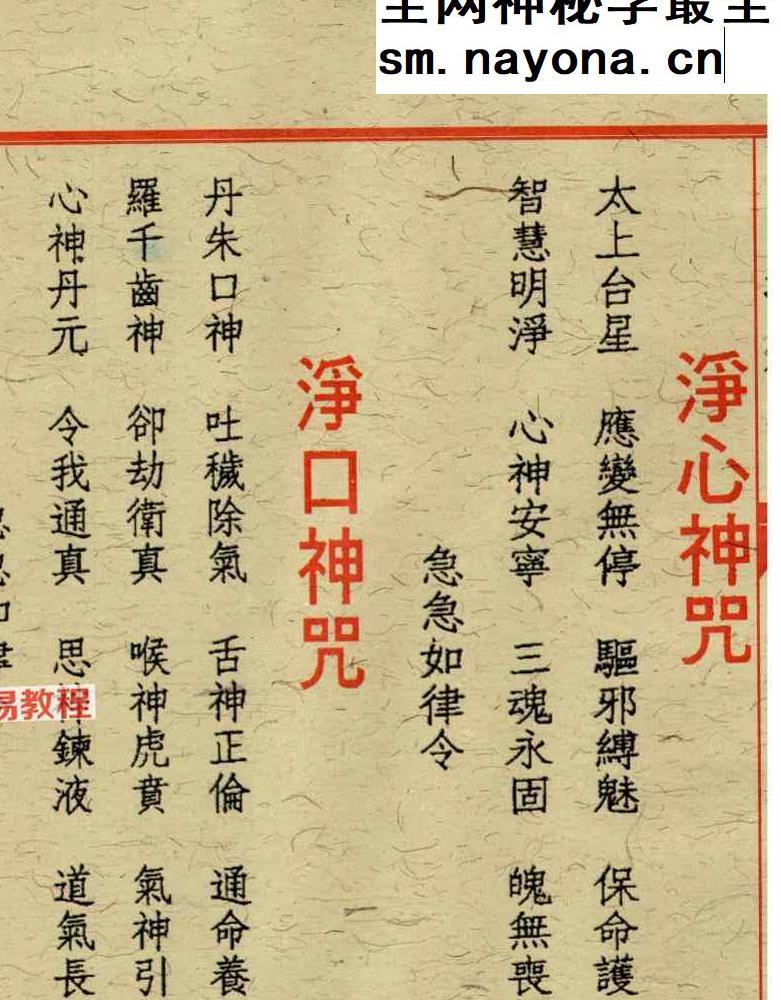 sm.nayona.cn
淨心神咒
太上台星 應變無停 驅邪縛魅 保命護
智慧明淨 心神安寧 三魂永固 魄無喪
急急如律令
淨口神咒
丹朱口神 吐穢除氣 舌神正倫 通命養
羅千齒神 卻劫衛真 喉神虎賁 氣神引
心神丹元 令我通真 思 鍊液 道氣長
教程